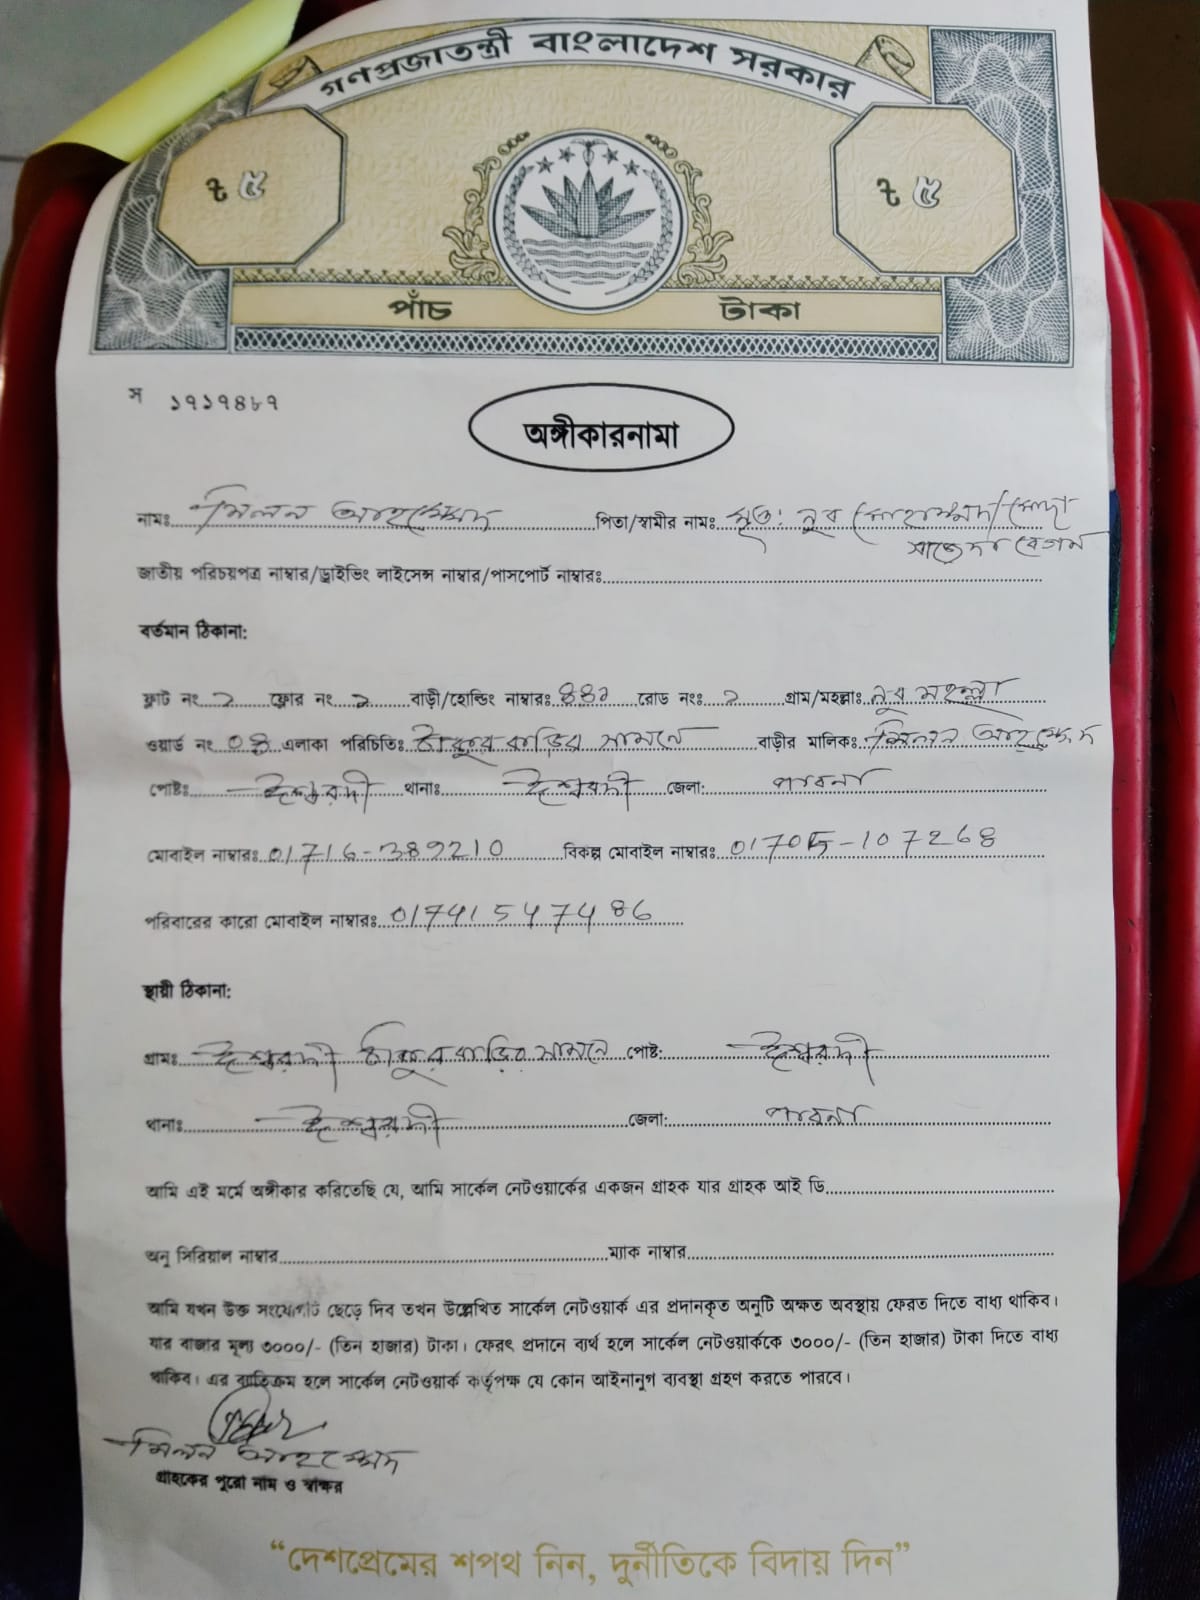 গণপ্রজাতন্ত্রী বাংলাদেশ সরকার
৳ ৫ ৳ ৫
পাঁচ টাকা
স ১৭১৭৪৮৭
অঙ্গীকারনামা
নামঃ মিলন আহম্মেদ পিতা/স্বামীর নামঃ মৃত: নুর মোহাম্মদ/মোছা
সাজেদা বেগম
জাতীয় পরিচয়পত্র নাম্বার/ড্রাইভিং লাইসেন্স নাম্বার/পাসপোর্ট নাম্বারঃ
বর্তমান ঠিকানা:
ফ্লাট নং ১ ফ্লোর নং ১ বাড়ী/হোল্ডিং নাম্বারঃ ৪৪১ রোড নংঃ ১ গ্রাম/মহল্লাঃ নুর মহল্লা
ওয়ার্ড নং ০৪ এলাকা পরিচিতিঃ ঠাকুর বাড়ির সামনে বাড়ীর মালিকঃ মিলন আহম্মেদ
পোষ্টঃ ঈশ্বরদী থানাঃ ঈশ্বরদী জেলা: পাবনা
মোবাইল নাম্বারঃ 01716-389210 বিকল্প মোবাইল নাম্বারঃ 01705-107268
পরিবারের কারো মোবাইল নাম্বারঃ 01741547486
স্থায়ী ঠিকানা:
গ্রামঃ ঈশ্বরদী ঠাকুর বাড়ির সামনে পোষ্ট: ঈশ্বরদী
থানাঃ ঈশ্বরদী জেলা: পাবনা
আমি এই মর্মে অঙ্গীকার করিতেছি যে, আমি সার্কেল নেটওয়ার্কের একজন গ্রাহক যার গ্রাহক আই ডি
অনু সিরিয়াল নাম্বার ম্যাক নাম্বার
আমি যখন উক্ত সংযোগটি ছেড়ে দিব তখন উল্লেখিত সার্কেল নেটওয়ার্ক এর প্রদানকৃত অনুটি অক্ষত অবস্থায় ফেরত দিতে বাধ্য থাকিব।
যার বাজার মূল্য ৩০০০/- (তিন হাজার) টাকা। ফেরৎ প্রদানে ব্যর্থ হলে সার্কেল নেটওয়ার্ককে ৩০০০/- (তিন হাজার) টাকা দিতে বাধ্য
থাকিব। এর ব্যতিক্রম হলে সার্কেল নেটওয়ার্ক কর্তৃপক্ষ যে কোন আইনানুগ ব্যবস্থা গ্রহণ করতে পারবে।
মিলন আহম্মেদ
গ্রাহকের পুরো নাম ও স্বাক্ষর
“দেশপ্রেমের শপথ নিন, দুর্নীতিকে বিদায় দিন”